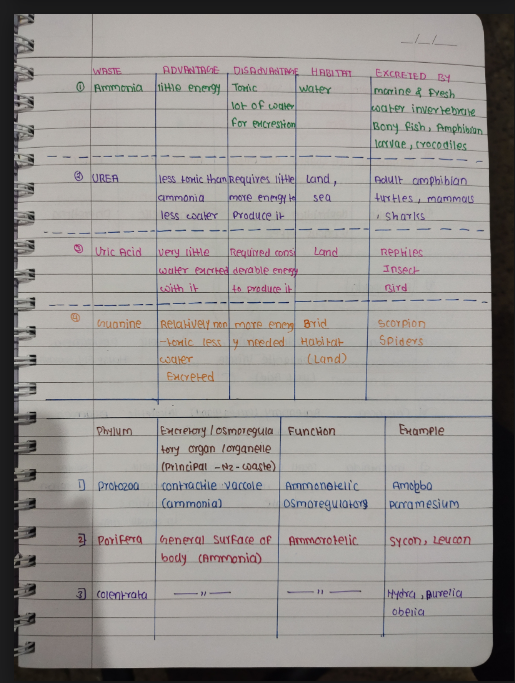 _/_/_
WASTE ADVANTAGE DISADVANTAGE HABITAT EXCRETED BY
① Ammonia little energy Toxic water marine & Fresh
lot of water water invertebrate
for excrestion Bony fish, Amphibian
larvae, crocodiles
② UREA less toxic than Requires little Land, Adult amphibian
ammonia more energy to sea turtles, mammals
less water Produce it , sharks
③ Uric Acid very little Required consi Land Reptiles
water excreted derable energy Insect
with it to produce it Bird
④ Guanine Relatively non more energ Brid Scorpion
-toxic less y needed Habitat Spiders
water (Land)
Excreted
Phylum Excretory/osmoregula Function Example
tory organ/organelle
(Principal -N2-waste)
1) Protozoa contractile vaccole Ammonotelic Amobba
(ammonia) Osmoregulatory Parramesium
2) Porifera General surface of Ammorotelic Sycon, Leucon
body (Ammonia)
3) Colentrata —〃— —〃— Hydra, Aurelia
obelia